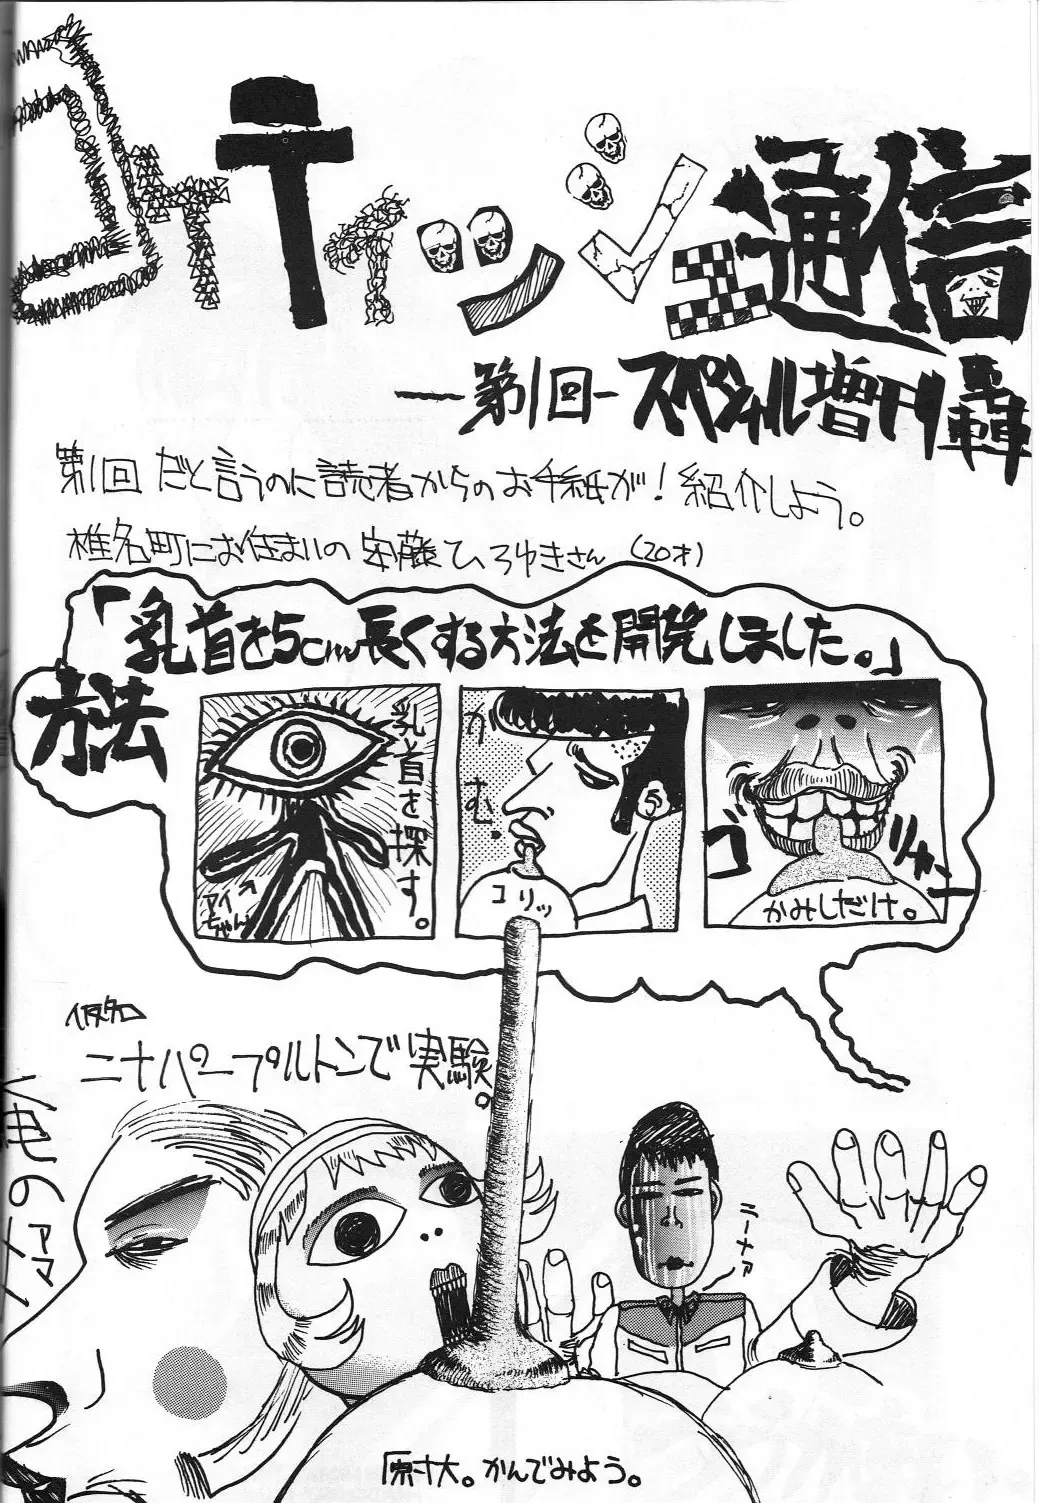 コォティッシュ通信
―第1回― スペシャル増刊轟
第1回 だと言うのに読者からのお手紙が！紹介しよう。
椎名町にお住まいの 安藤ひろゆきさん (20才)
「乳首を5cm長くする方法を開発しました。」
方法
乳首を探す。
アイちゃん
かむ。
コリッ
ゴリャンー
かみしだけ。
仮名
ニナパープルトンで実験。
俺の
ニーナァ
原寸大。かんでみよう。